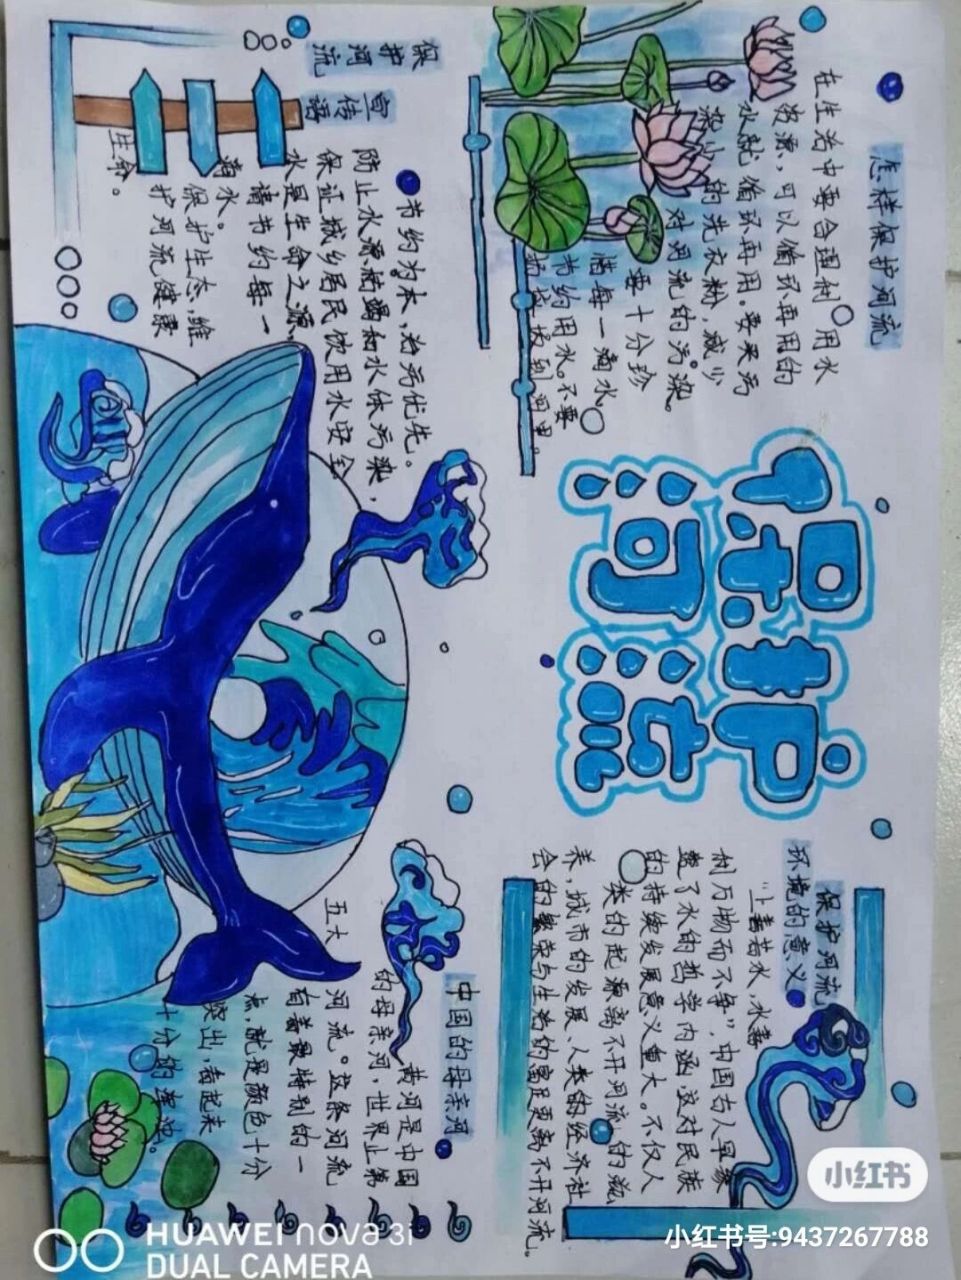 保护河流
怎样保护河流
在生活中要合理利用水
资源,可以循环再用的
水就循环再用。要采污
染少的洗衣粉,减少
对河流的污染。
要十分珍
惜每一滴水
节约用水。不要
扔垃圾到河里。
保护河流
环境的意义
“上善若水,水善
利万物而不争”,中国古人早参
透了水的哲学内涵,这对民族
的持续发展意义重大。不仅人
类的起源离不开河流的滋
养,城市的发展、人类的经济社
会的繁荣与生活的富足更离不开河流。
保护河流
宣传语
节约为本,治污优先。
防止水源枯竭和水体污染,
保证城乡居民饮用水安全
水是生命之源,
请节约每一
滴水。
保护生态,维
护河流健康
生命。
中国的母亲河
黄河是中国
的母亲河,世界上第
五大河流。这条河流
有着最特别的一
点,就是颜色十分
突出,看起来
十分的浑浊。
小红书
小红书号:9437267788
HUAWEI nova 3i
DUAL CAMERA